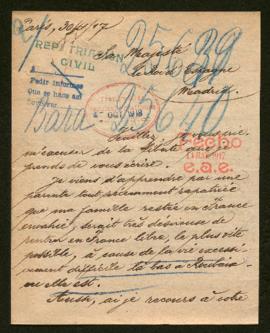 Paris, 30/4/17
Sa Majesté
Le Roi d'Espagne
Madrid
REPATRIACION
CIVIL
A
Pedir informes
Que se hace así
25639
25640
Bara
Hecho
e.a.e.
Veuillez, je vous prie,
m'excuser de la liberté que je
prends de vous écrire.
Je viens d'apprendre par une
parente tout récemment rapatriée
que ma famille restée en France
envahie, serait très désireuse de
rentrer en France libre, le plus vite
possible, à cause de la vie excessi-
vement difficile là bas à Roubaix
où elle est.
Aussi, ai-je recours à votre